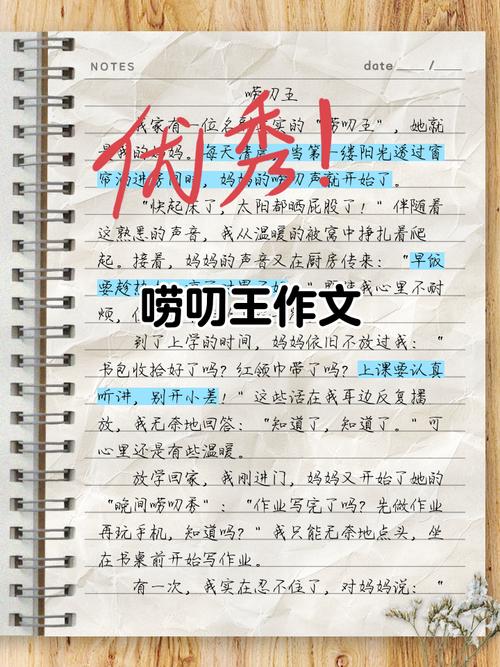 NOTES
date ____ / ____
唠叨王
我家有一位名副其实的“唠叨王”，她就
是我的妈妈。每天清晨，当第一缕阳光透过窗
帘洒进房间时，妈妈的唠叨声就开始了。
优秀！
“快起床了，太阳都晒屁股了！”伴随着
这熟悉的声音，我从温暖的被窝中挣扎着爬
起。接着，妈妈的声音又在厨房传来：“早饭
要趁热
我心里不耐
烦，
唠叨王作文
到了上学的时间，妈妈依旧不放过我：“
书包收拾好了吗？红领巾带了吗？上课要认真
听讲，别开小差！”这些话在我耳边反复播
放，我无奈地回答：“知道了，知道了。”可
心里还是有些温暖。
放学回家，我刚进门，妈妈又开始了她的
“晚间唠叨秀”：“作业写完了吗？先做作业
再玩手机，知道吗？”我只能无奈地点头，坐
在书桌前开始写作业。
有一次，我实在忍不住了，对妈妈说：“